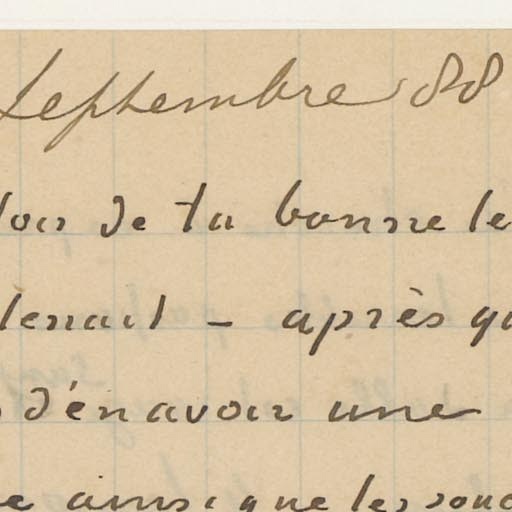 Septembre 88
de ta bonne le
tenait – après qu
d'en avoir une
ainsi que les sou